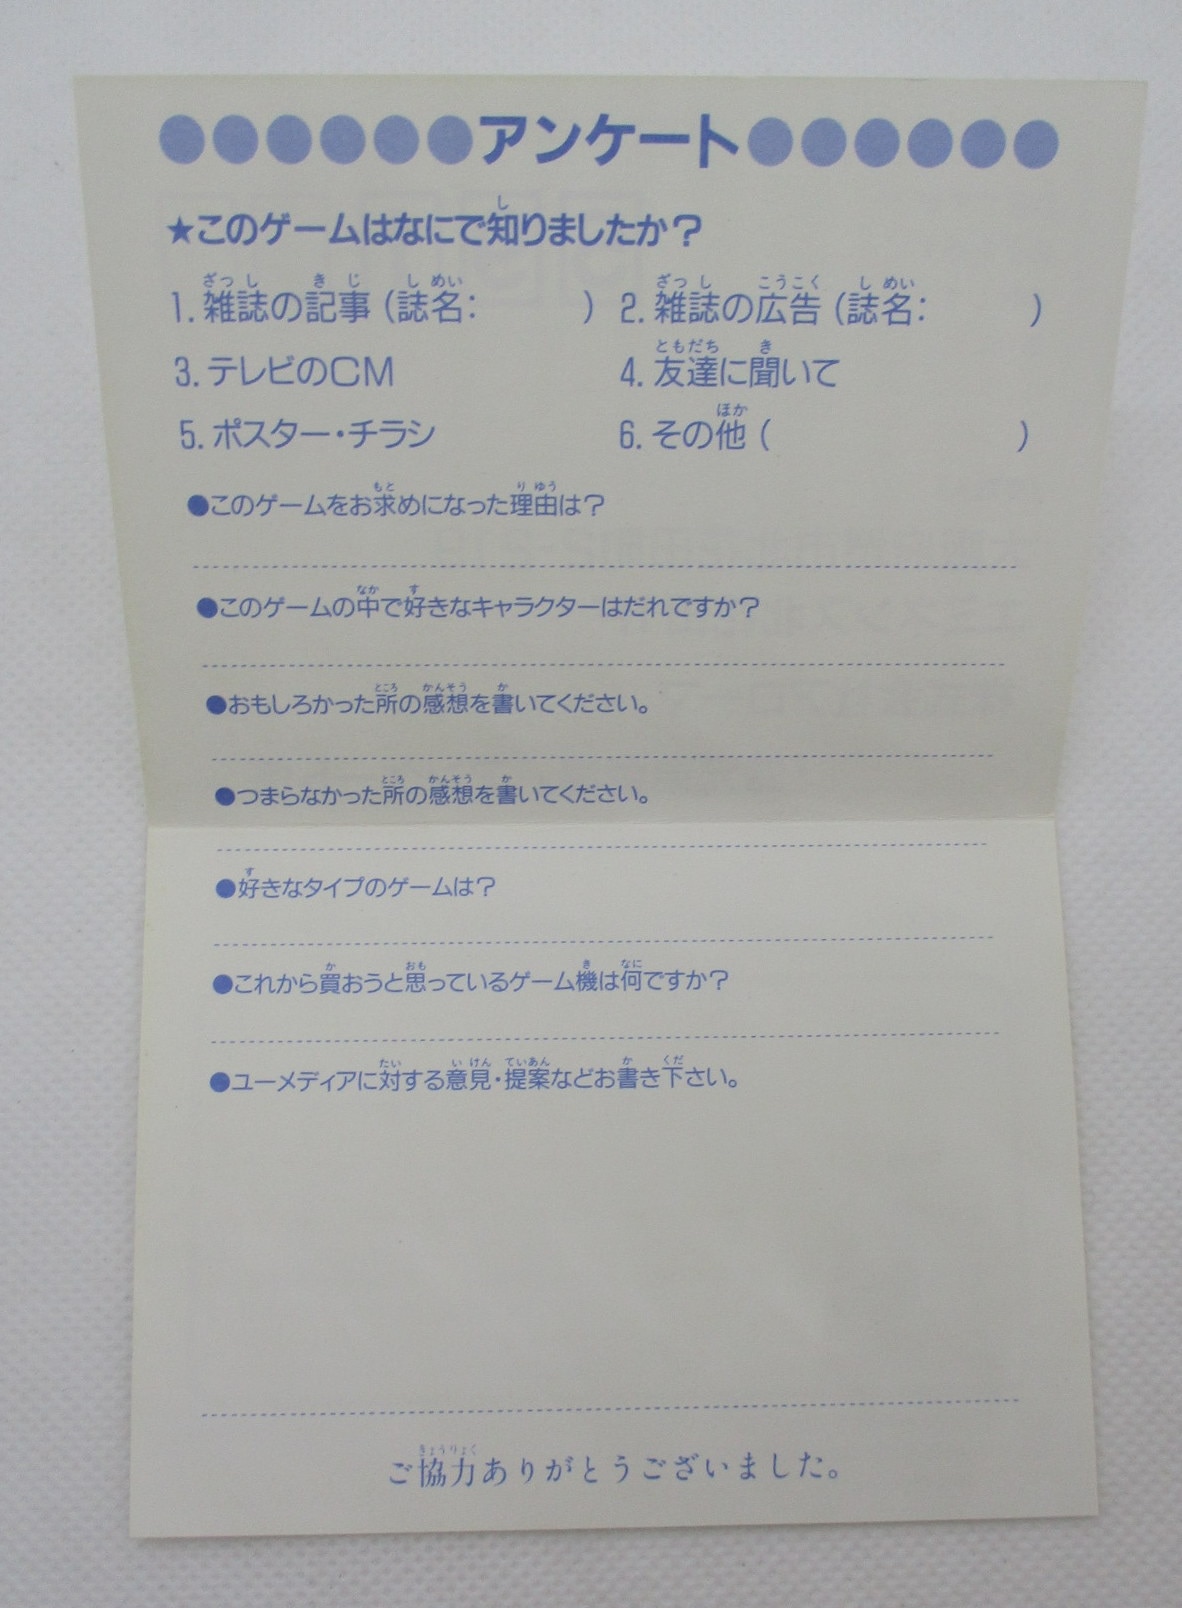 ●●●●●●アンケート●●●●●●
★このゲームはなにで知りましたか?
1. 雑誌の記事 (誌名: ) 2. 雑誌の広告 (誌名: )
3. テレビのCM 4. 友達に聞いて
5. ポスター・チラシ 6. その他 ( )
●このゲームをお求めになった理由は?
●このゲームの中で好きなキャラクターはだれですか?
●おもしろかった所の感想を書いてください。
●つまらなかった所の感想を書いてください。
●好きなタイプのゲームは?
●これから買おうと思っているゲーム機は何ですか?
●ユーメディアに対する意見・提案などお書き下さい。
ご協力ありがとうございました。